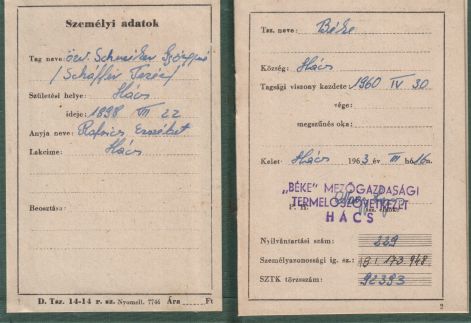 Személyi adatok
Tag neve: özv. Schneiker Györgyné
/Schäffer Teréz/
Születési helye: Hács
ideje: 1898 VII 22
Anyja neve: Erzsébet
Lakcíme: Hács
Beosztása:
D. Tsz. 14-14 r. sz. Nyomell. 7746 Ára Ft
Tsz. neve: Béke
Község: Hács
Tagsági viszony kezdete: 1960 IV. 30
vége:
megszűnés oka:
Kelet: Hács 1963 év III hó 16n.
„BÉKE" MEZŐGAZDASÁGI
TERMELŐSZÖVETKEZET
P. H.
HÁCS
Nyilvántartási szám: 229
Személyazonossági ig. sz.: 173 948
SZTK törzsszám: 92393
2